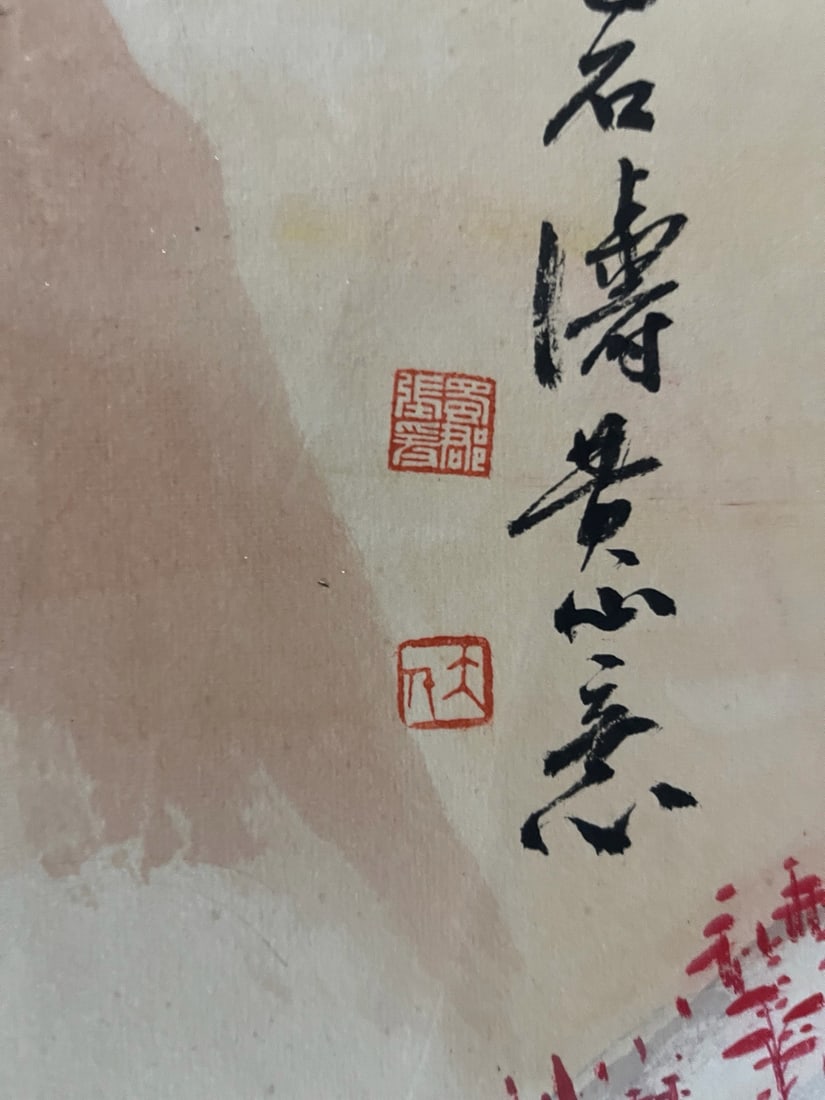 石濤黄山意
蜀郡
張爰
大千